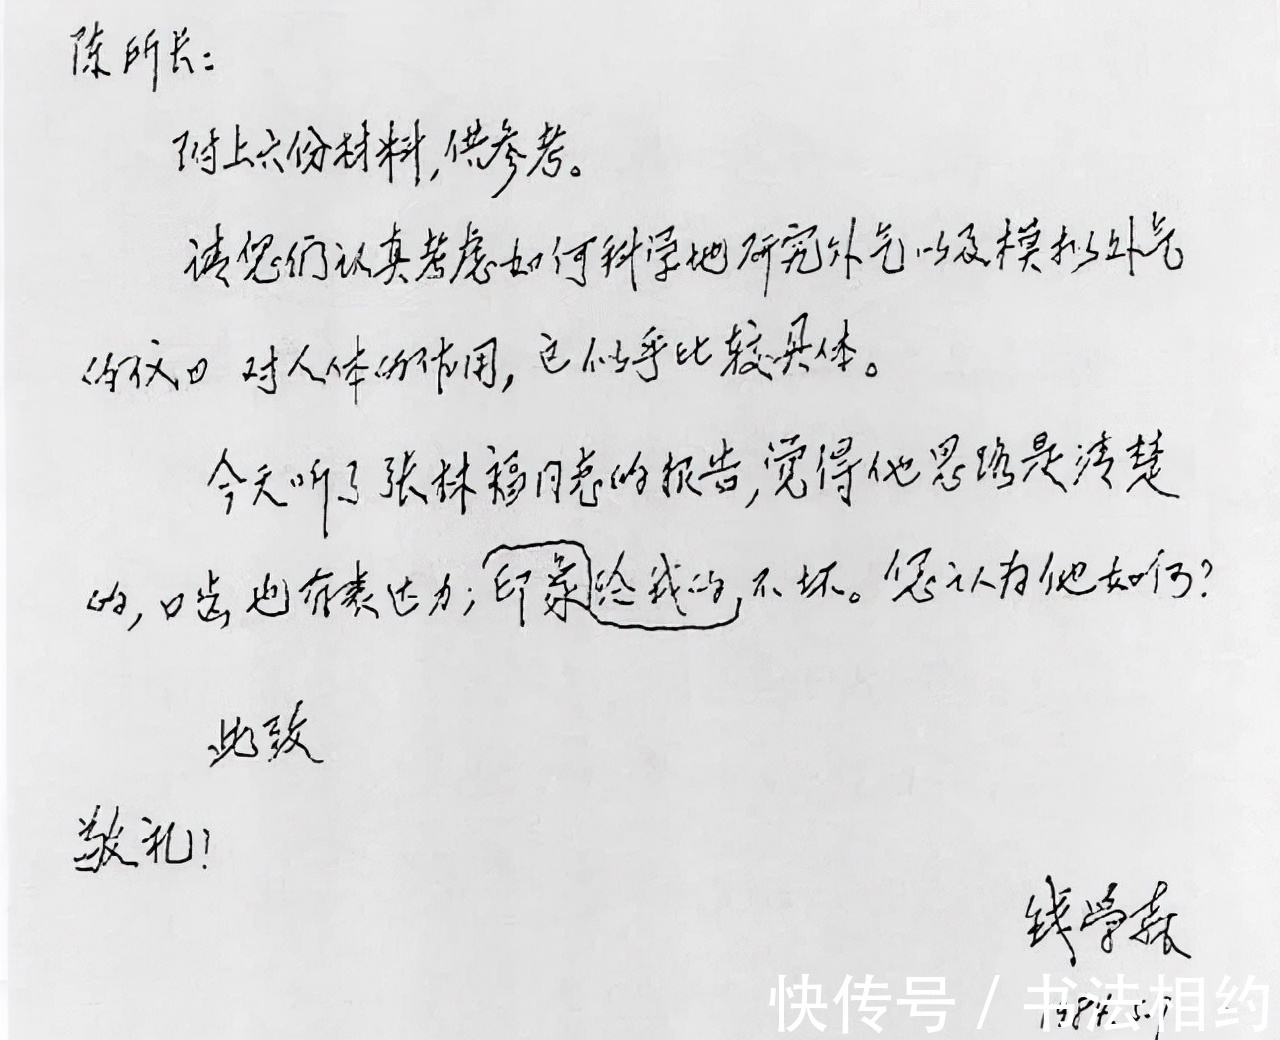 陈所长：
附上六份材料，供参考。
请您们认真考虑如何科学地研究外气以及模拟外气
的仪 对人体的作用，它似乎比较具体。
今天听了张林福同志的报告，觉得他思路是清楚
的，口齿也有表达力；印象给我的，不坏。您认为他如何？
此致
敬礼！
钱学森
1984.5.9
快传号 / 书法相约